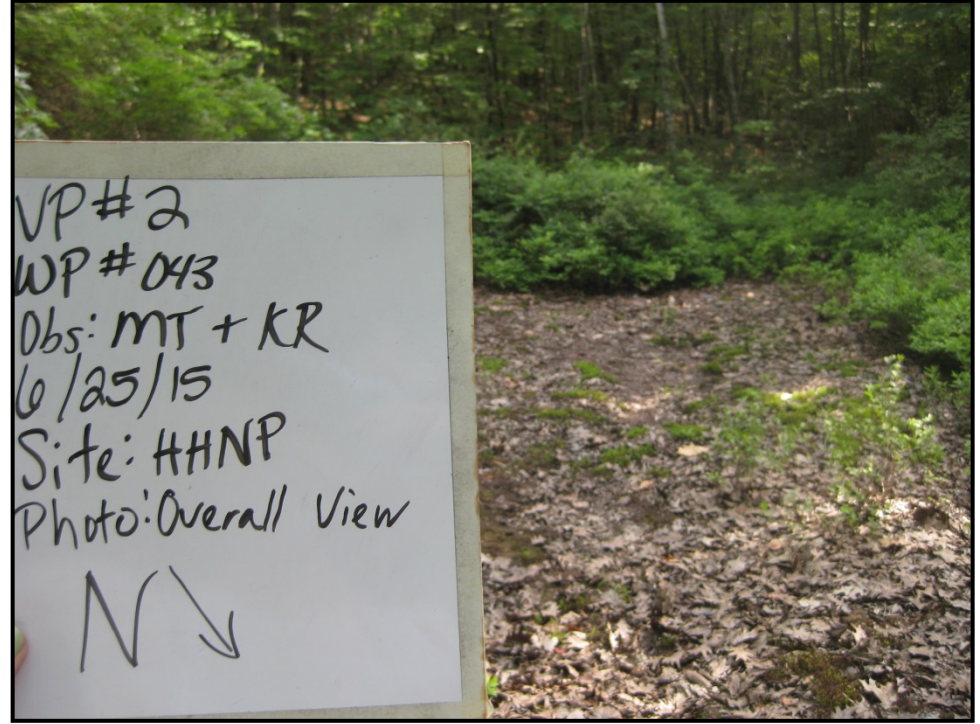 VP#2
WP# 043
Obs: MT + KR
6/25/15
Site: HHNP
Photo: Overall View
N